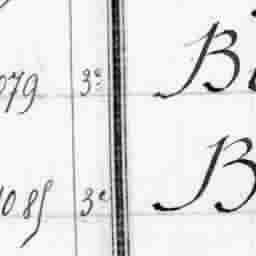 079 3e B
1085 3e B